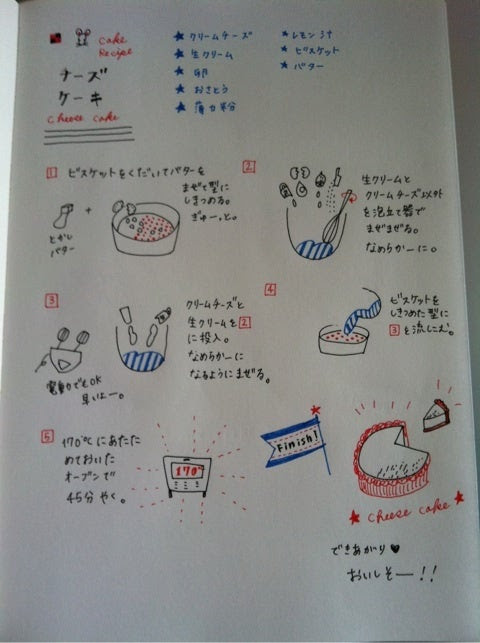 cake
Recipe
チーズ
ケーキ
cheese cake
★ クリームチーズ
★ 生クリーム
★ 卵
★ おさとう
★ 薄力粉
★ レモン汁
★ ビスケット
★ バター
1 ビスケットをくだいてバターを
まぜて型に
しきつめる。
ぎゅーっと。
+
とかし
バター
2
生クリームと
クリームチーズ以外
を泡立て器で
まぜまぜる。
なめらかーに。
3
クリームチーズと
生クリームを2
に投入。
なめらかーに
なるようにまぜる。
電動でもOK
早いよー。
4
ビスケットを
しきつめた型に
3を流しこむ。
5 170℃にあたた
めておいた
オーブンで
45分やく。
170°
Finish!
★ cheese cake ★
できあがり♥
おいしそー!!